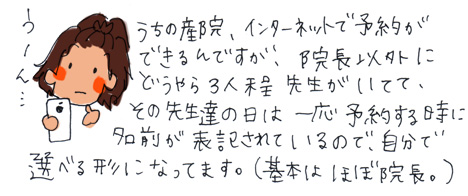 う〜ん…
うちの産院、インターネットで予約が
できるんですが、院長以外に
どうやら3人程 先生がいてて、
その先生達の日は一応予約する時に
名前が表記されているので、自分で
選べる形になってます。(基本はほぼ院長。)